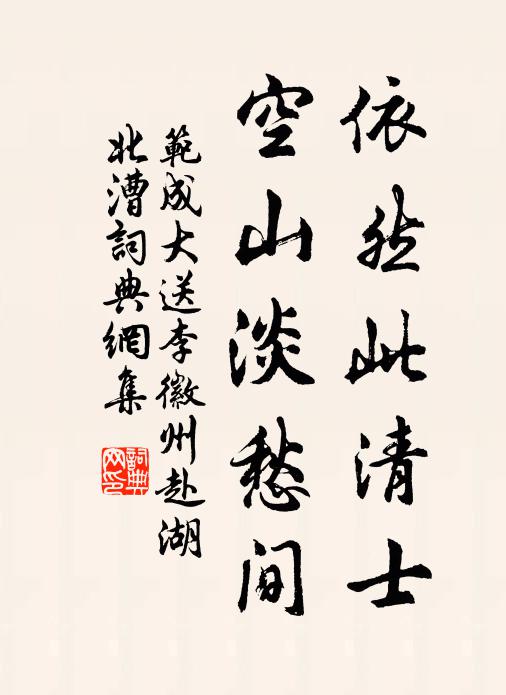 依然此清士
空山淡愁间
範成大送李徽州赴湖
北漕詞典網集
詞典
网印